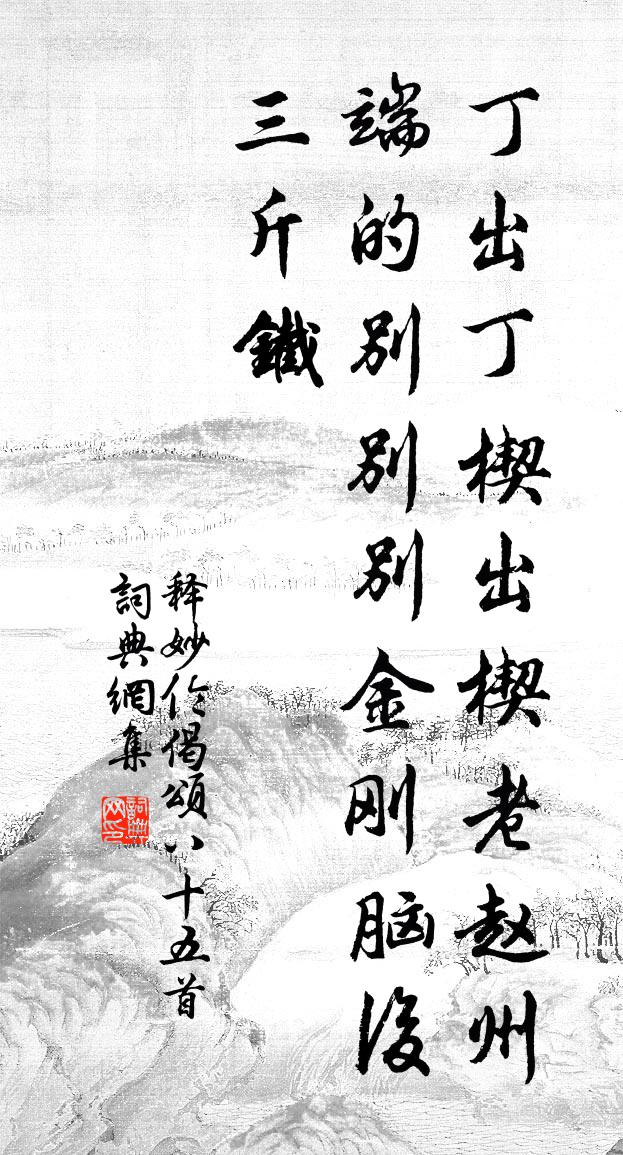 丁出丁楔出楔老赵州
端的别别别金刚脑後
三斤鐵
释妙伦偈頌八十五首
詞典網集
詞典
网印